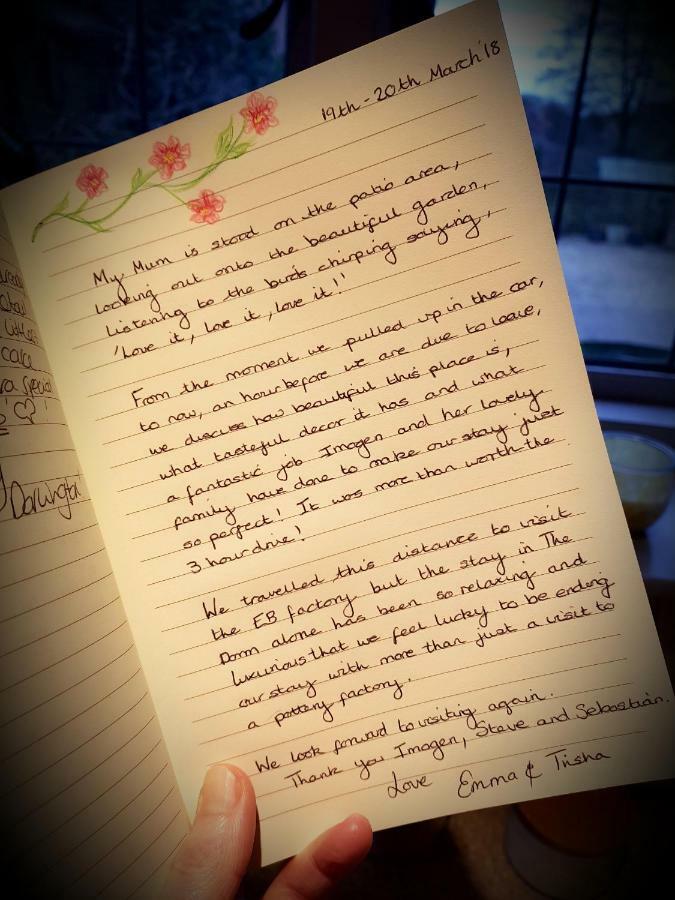 19th - 20th March '18
My Mum is stood on the patio area,
looking out onto the beautiful garden,
listening to the birds chirping saying,
'Love it, love it, love it!'
From the moment we pulled up in the car,
to now, an hour before we are due to leave,
we discuss how beautiful this place is,
what tasteful decor it has and what
a fantastic job Imogen and her lovely
family have done to make our stay just
so perfect! It was more than worth the
3 hour drive!
We travelled this distance to visit
the EB factory but the stay in The
Dorm alone has been so relaxing and
luxurious that we feel lucky to be ending
our stay with more than just a visit to
a pottery factory.
We look forward to visiting again.
Thank you Imogen, Steve and Sebastian.
Love Emma & Trisha
special